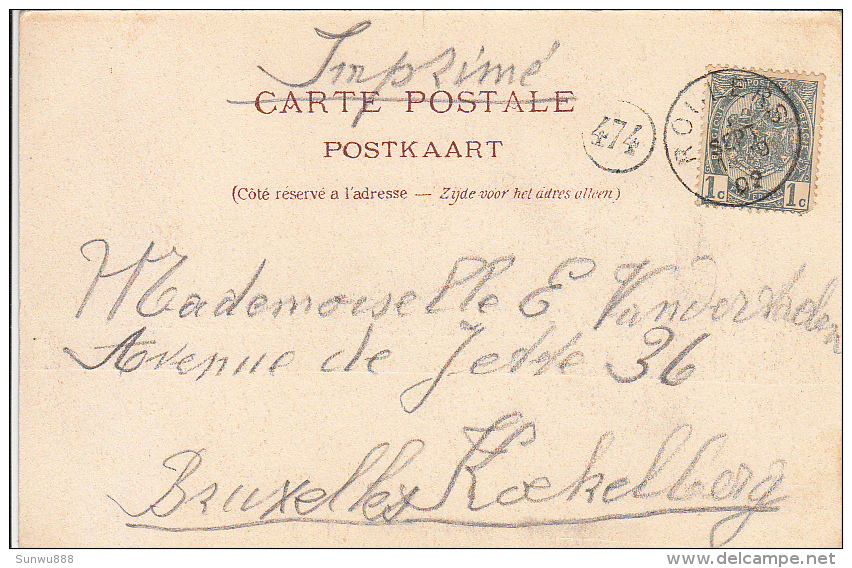 Imprimé
CARTE POSTALE
POSTKAART
(Côté réservé a l'adresse — Zijde voor het adres alleen)
474
ROULERS
SEPT
02
1c 1c
Mademoiselle E
Avenue de Jette 36
Bruxelles Koekelberg
Sunwu888
delcampe.net